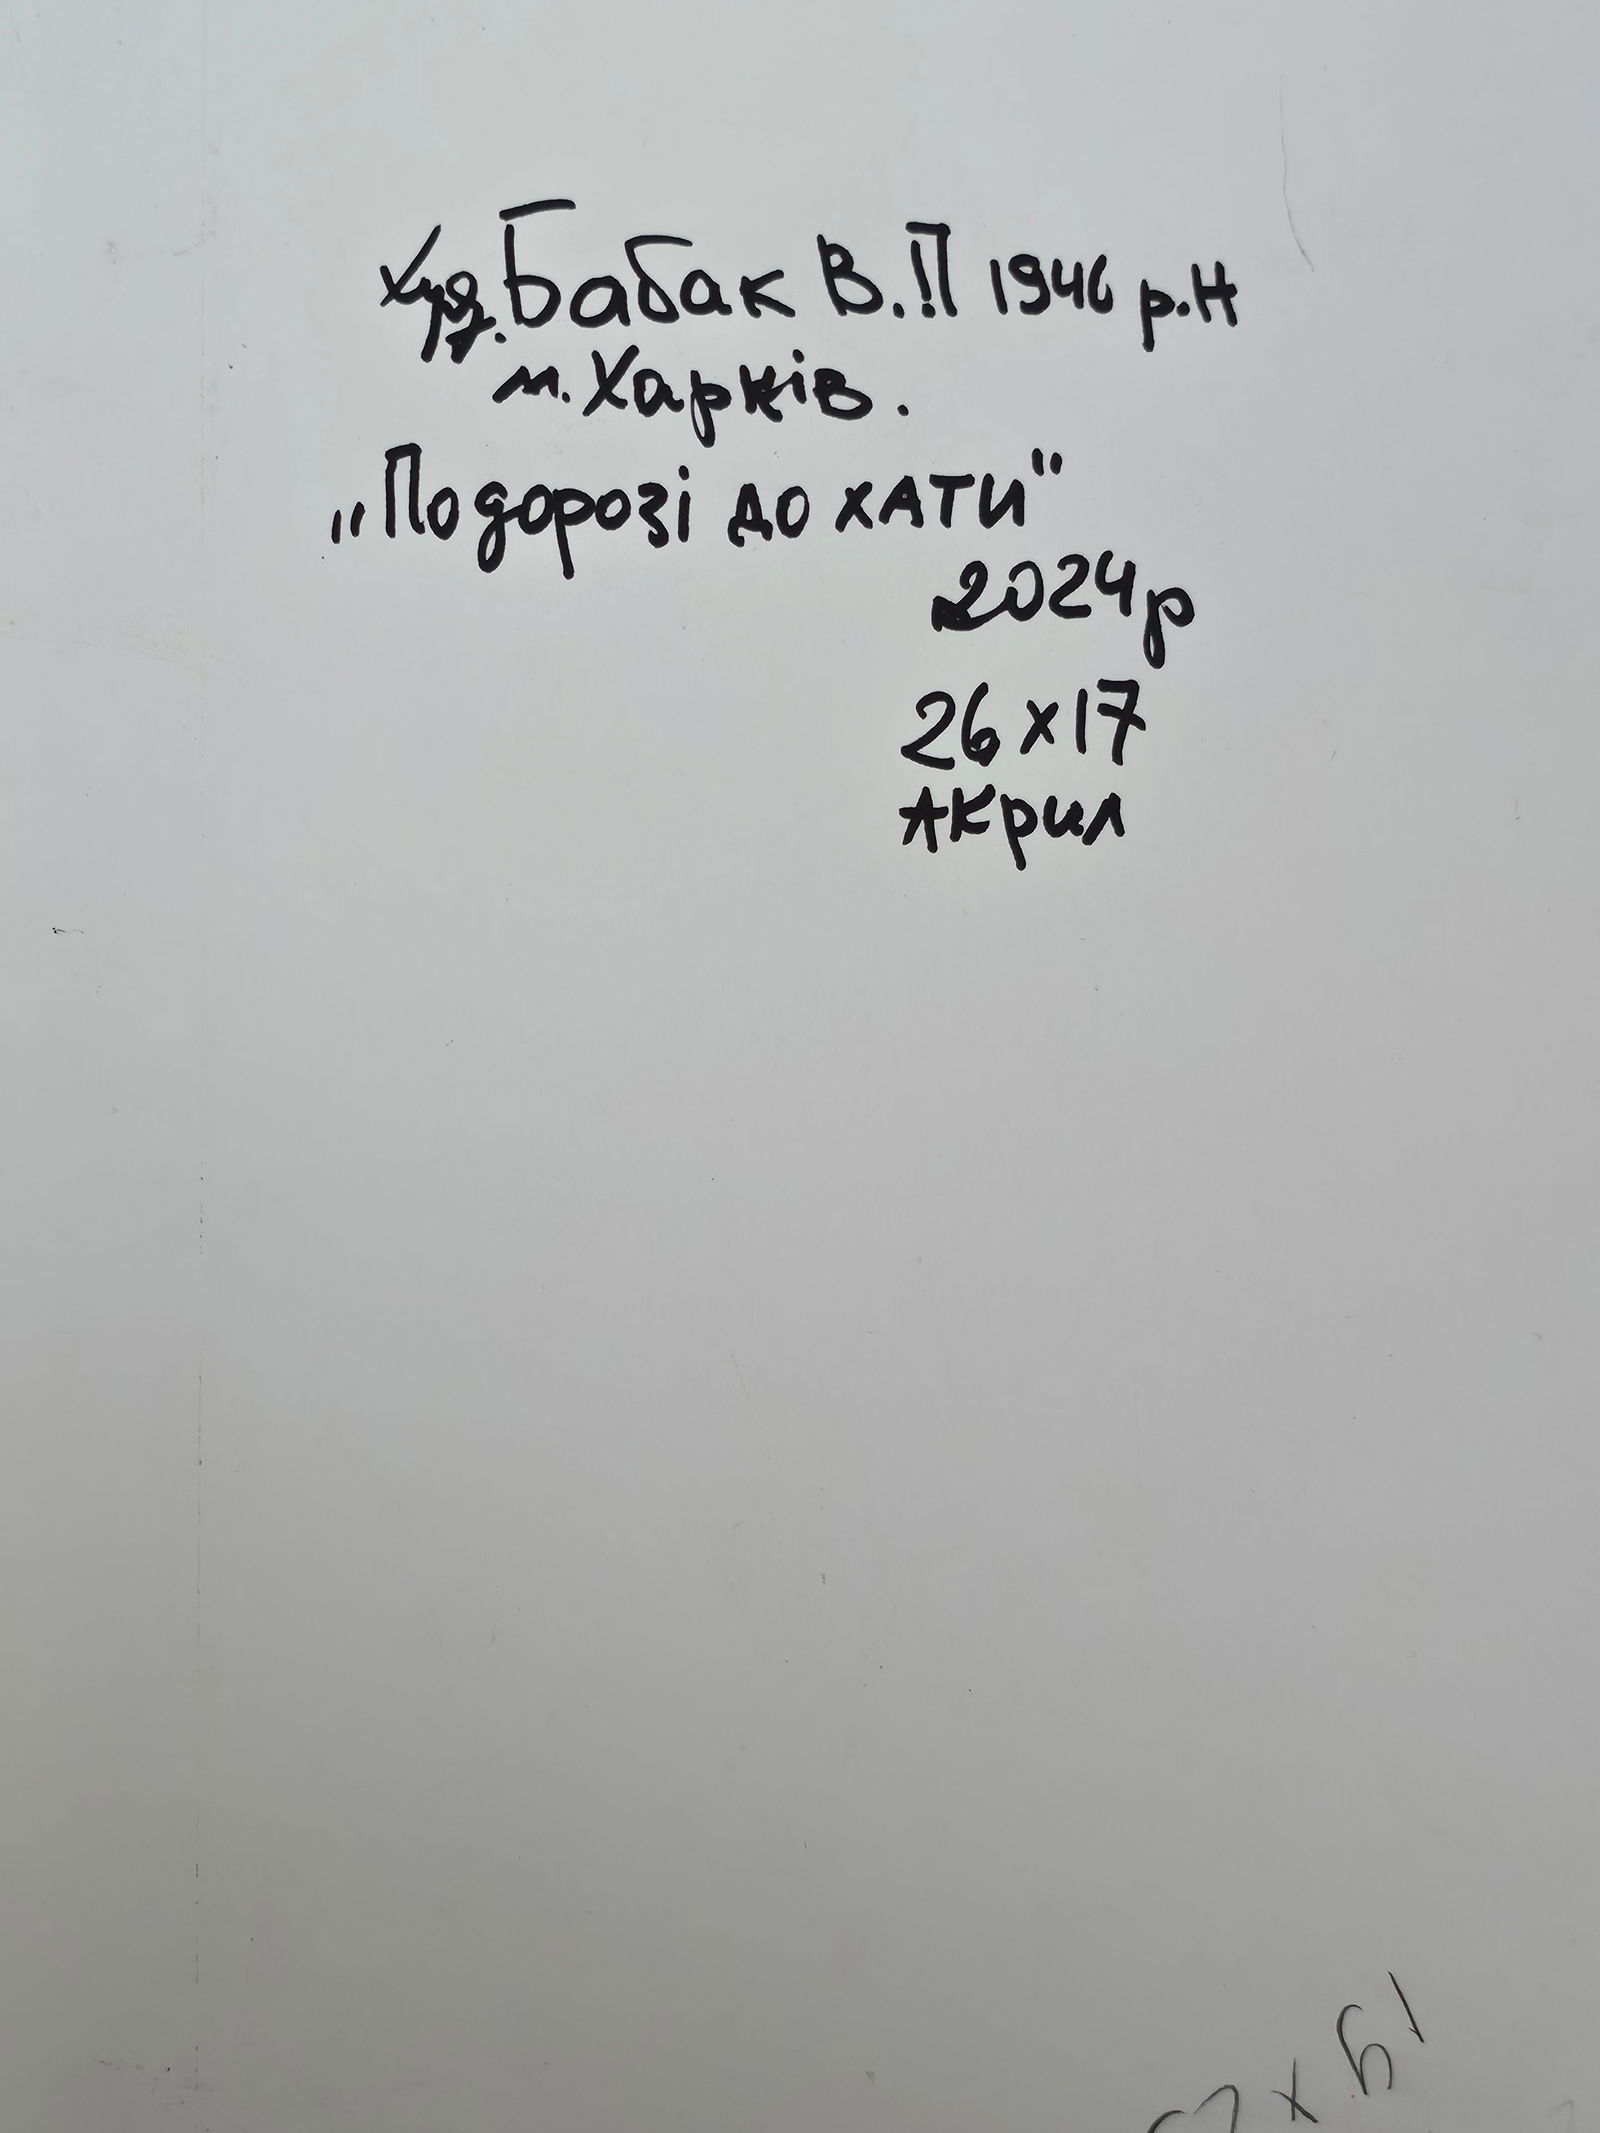 Худ. Бабак В.П 1946 р.н
м. Харків.
„По дорозі до хати"
2024р
26х17
Акрил